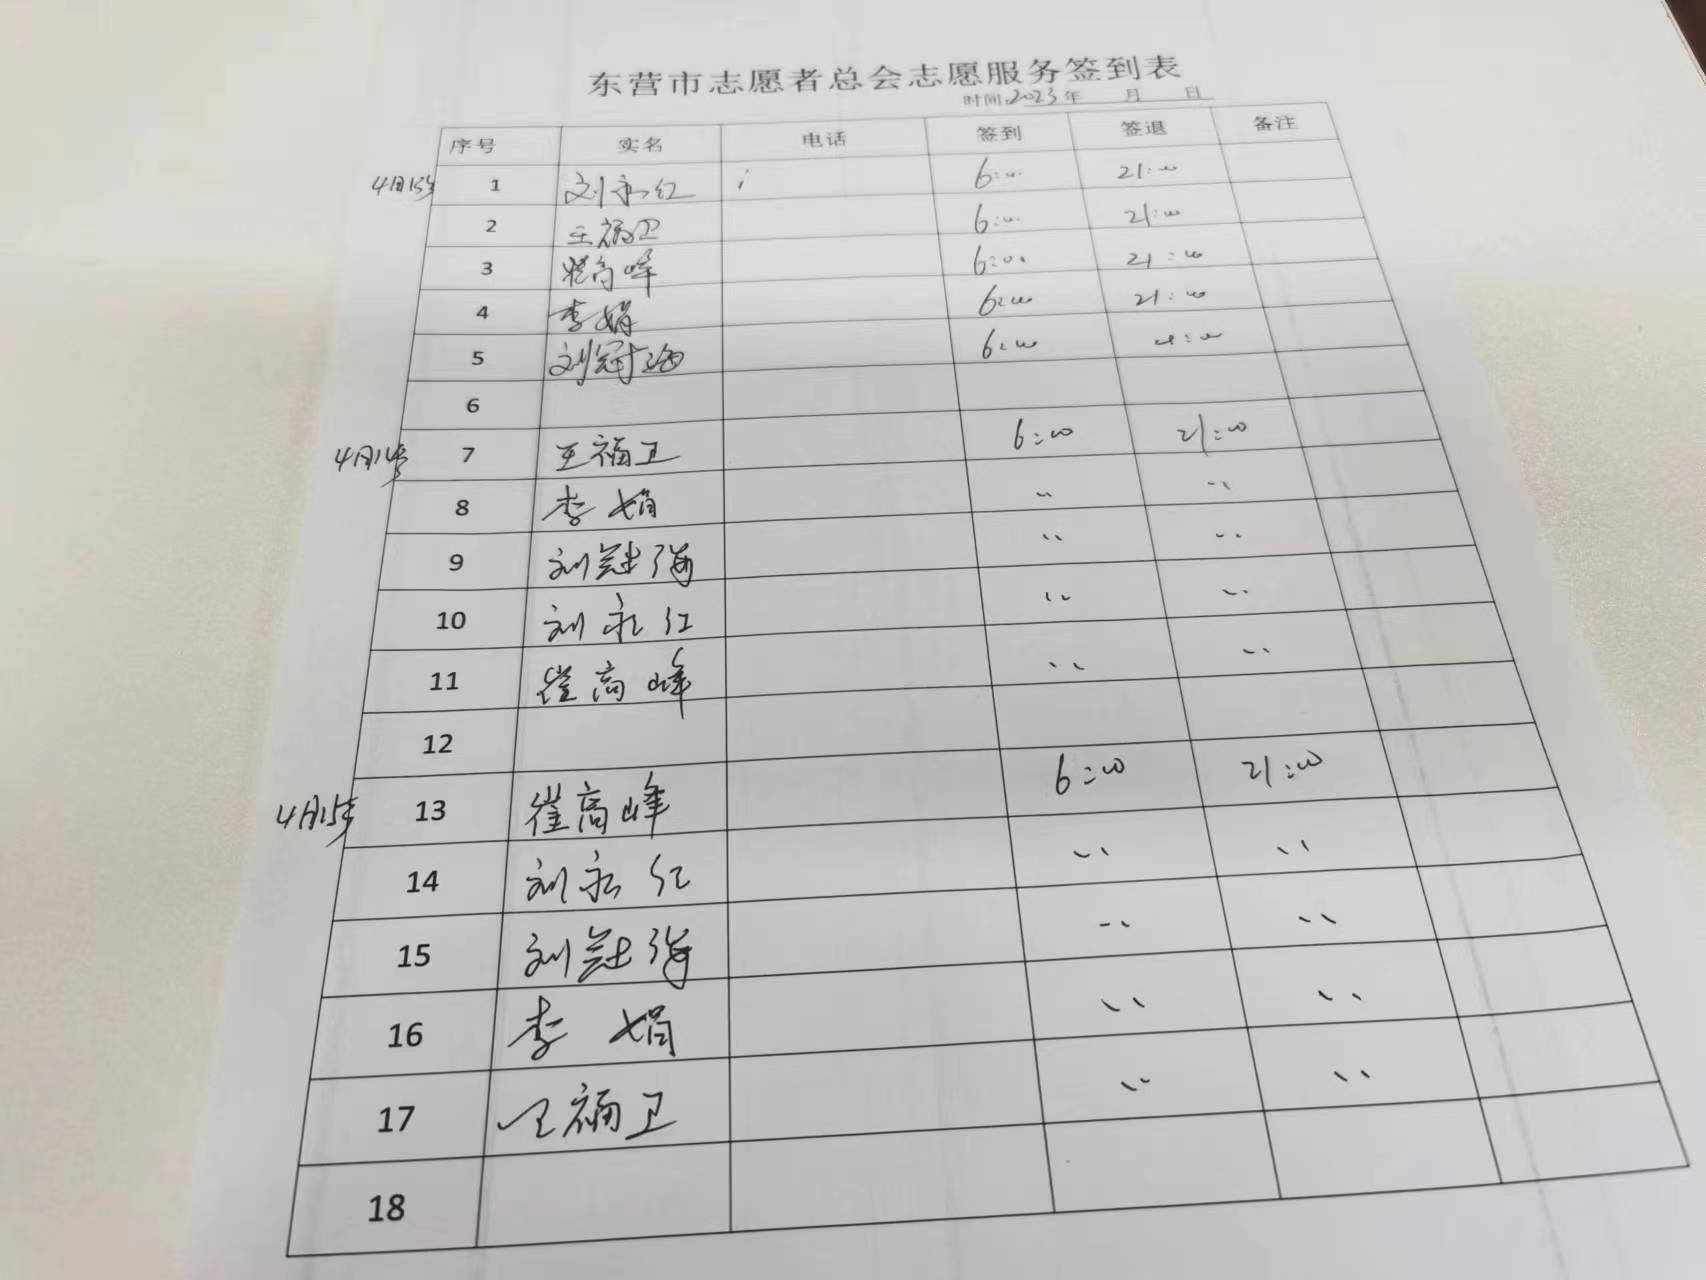 东营市志愿者总会志愿服务签到表
时间:2023年 月 日
序号 实名 电话 签到 签退 备注
4月13号 1 刘永红 6:00 21:00
2 王福卫 6:00 21:00
3 崔高峰 6:00 21:00
4 李娟 6:00 21:00
5 刘冠海 6:00 21:00
6
4月14号 7 王福卫 6:00 21:00
8 李娟 〃 〃
9 刘冠海 〃 〃
10 刘永红 〃 〃
11 崔高峰 〃 〃
12
4月15号 13 崔高峰 6:00 21:00
14 刘永红 〃 〃
15 刘冠海 〃 〃
16 李娟 〃 〃
17 王福卫 〃 〃
18